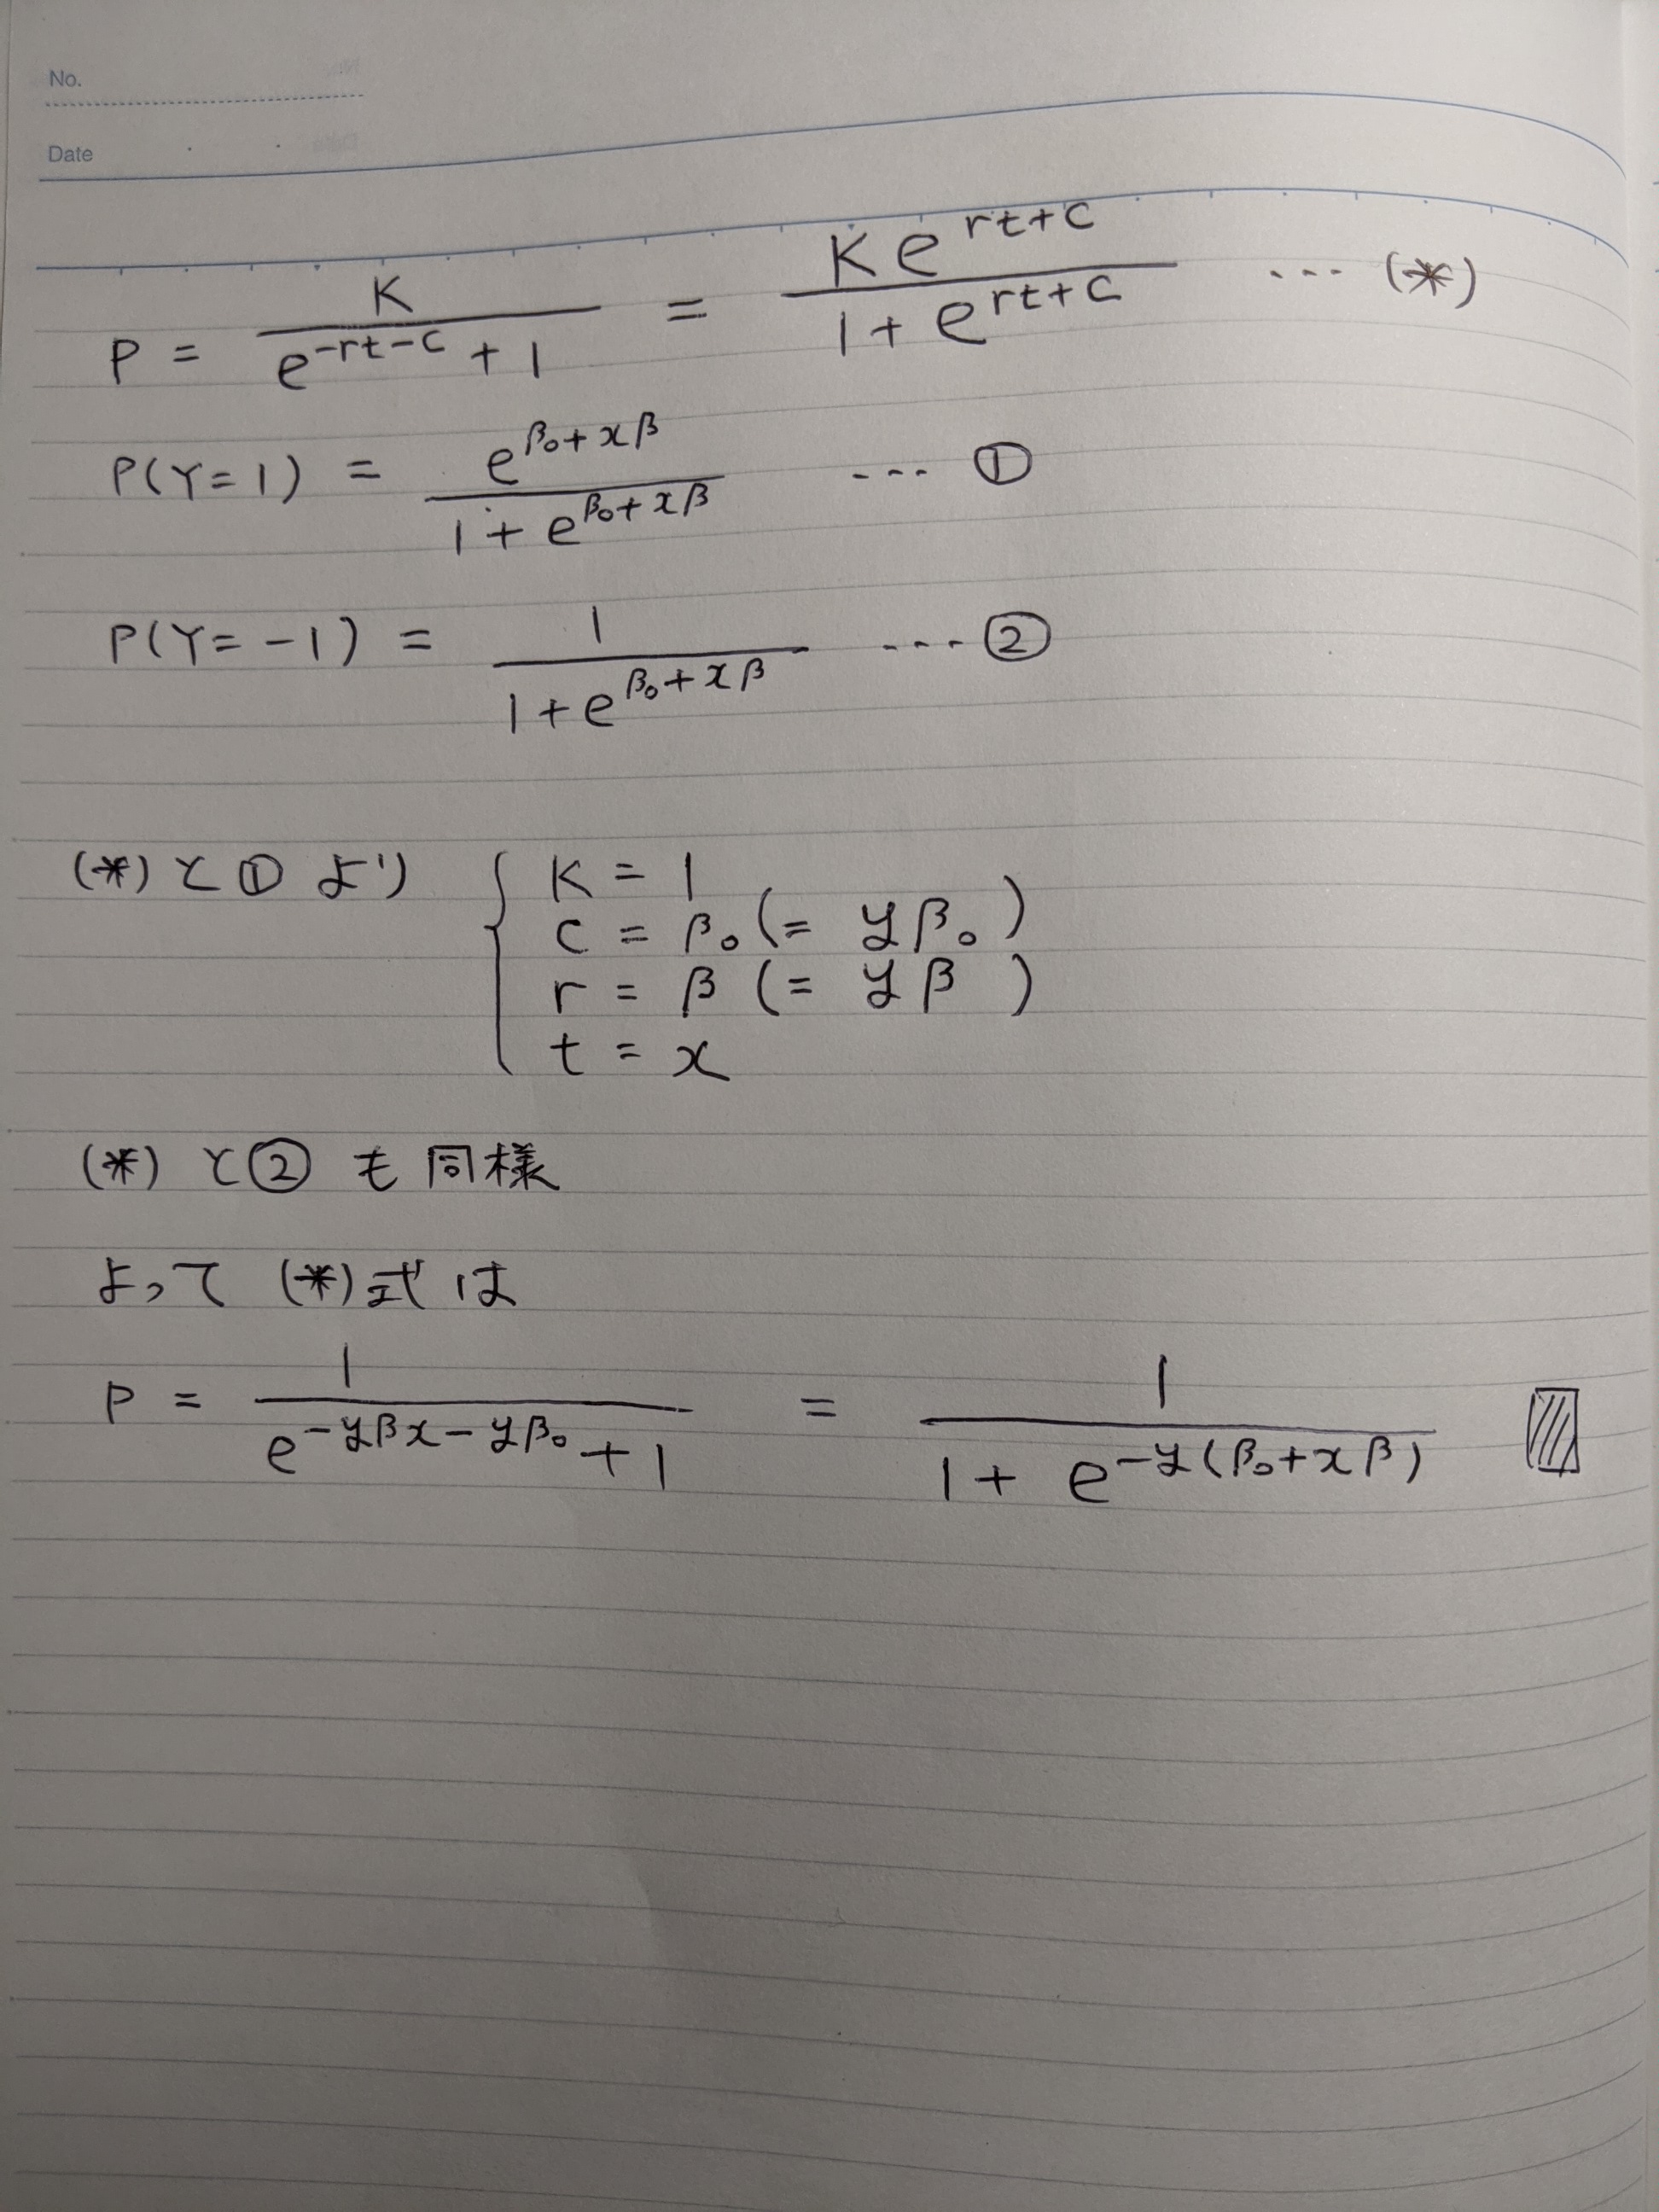 No.
Date
P = K / (e^{-rt-c} + 1) = Ke^{rt+c} / (1 + e^{rt+c}) ... (*)
P(Y=1) = e^{β₀+xβ} / (1 + e^{β₀+xβ}) ... ①
P(Y=-1) = 1 / (1 + e^{β₀+xβ}) ... ②
(*) と ① より { K = 1
c = β₀ (= yβ₀)
r = β (= yβ)
t = x
(*) と ② も 同様
よって (*)式は
P = 1 / (e^{-yβx-yβ₀} + 1) = 1 / (1 + e^{-y(β₀+xβ)})